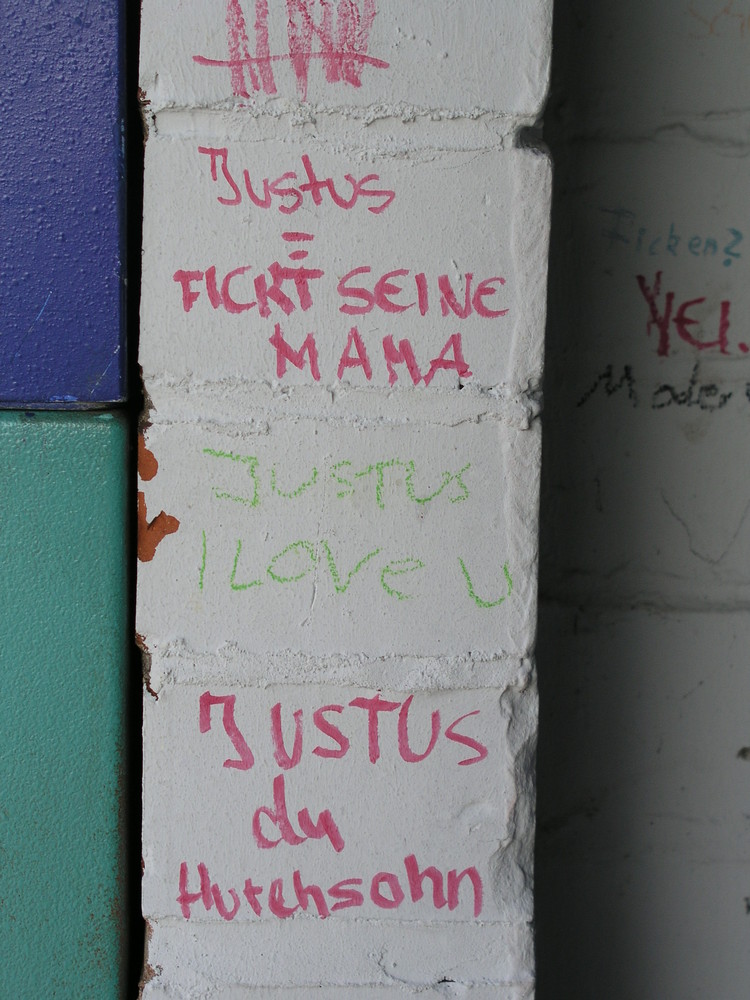 Justus
=
FICKT SEINE
MAMA
JUSTUS
I LOVE U
JUSTUS
du
Hurehsohn
Ficken?
NEI.